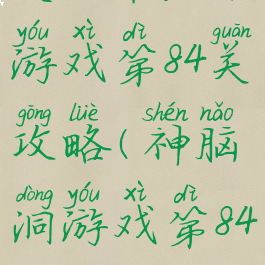 yóu xì dì guān
游戏第84关
gōng lüè shén nǎo
攻略(神脑
dòng yóu xì dì
洞游戏第84